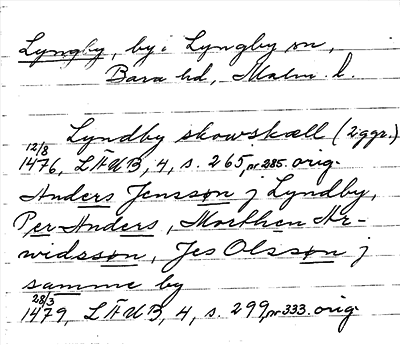 Lyngby, by i Lyngby sn,
Bara hd, Malm. l.
Lyndby skowskæll (2 ggr.)
12/8
1476, LÄUB, 4, s. 265, nr 285. orig.
Anders Jensson j Lyndby,
Per Anders, Morthen Ar-
widsson, Jes Olsson j
samme by
28/3
1479, LÄUB, 4, s. 299, nr 333. orig.